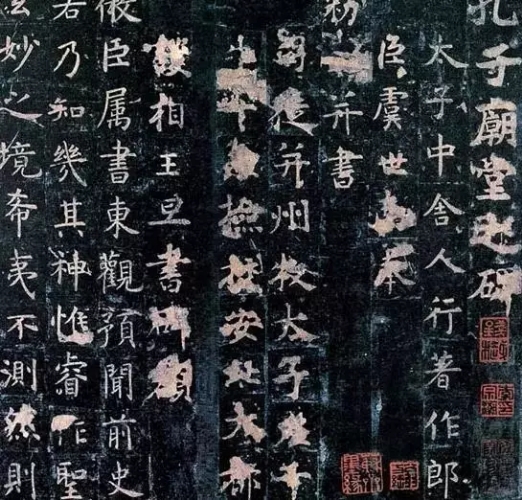 孔子廟堂之碑
太子中舍人行著作郎
臣虞世南奉
勑并書
司徒并州牧太子左千
牛檢校安北大都
護相王旦書碑額
微臣属書東觀預聞前史
若乃知幾其神惟睿作聖
玄妙之境希夷不測然則